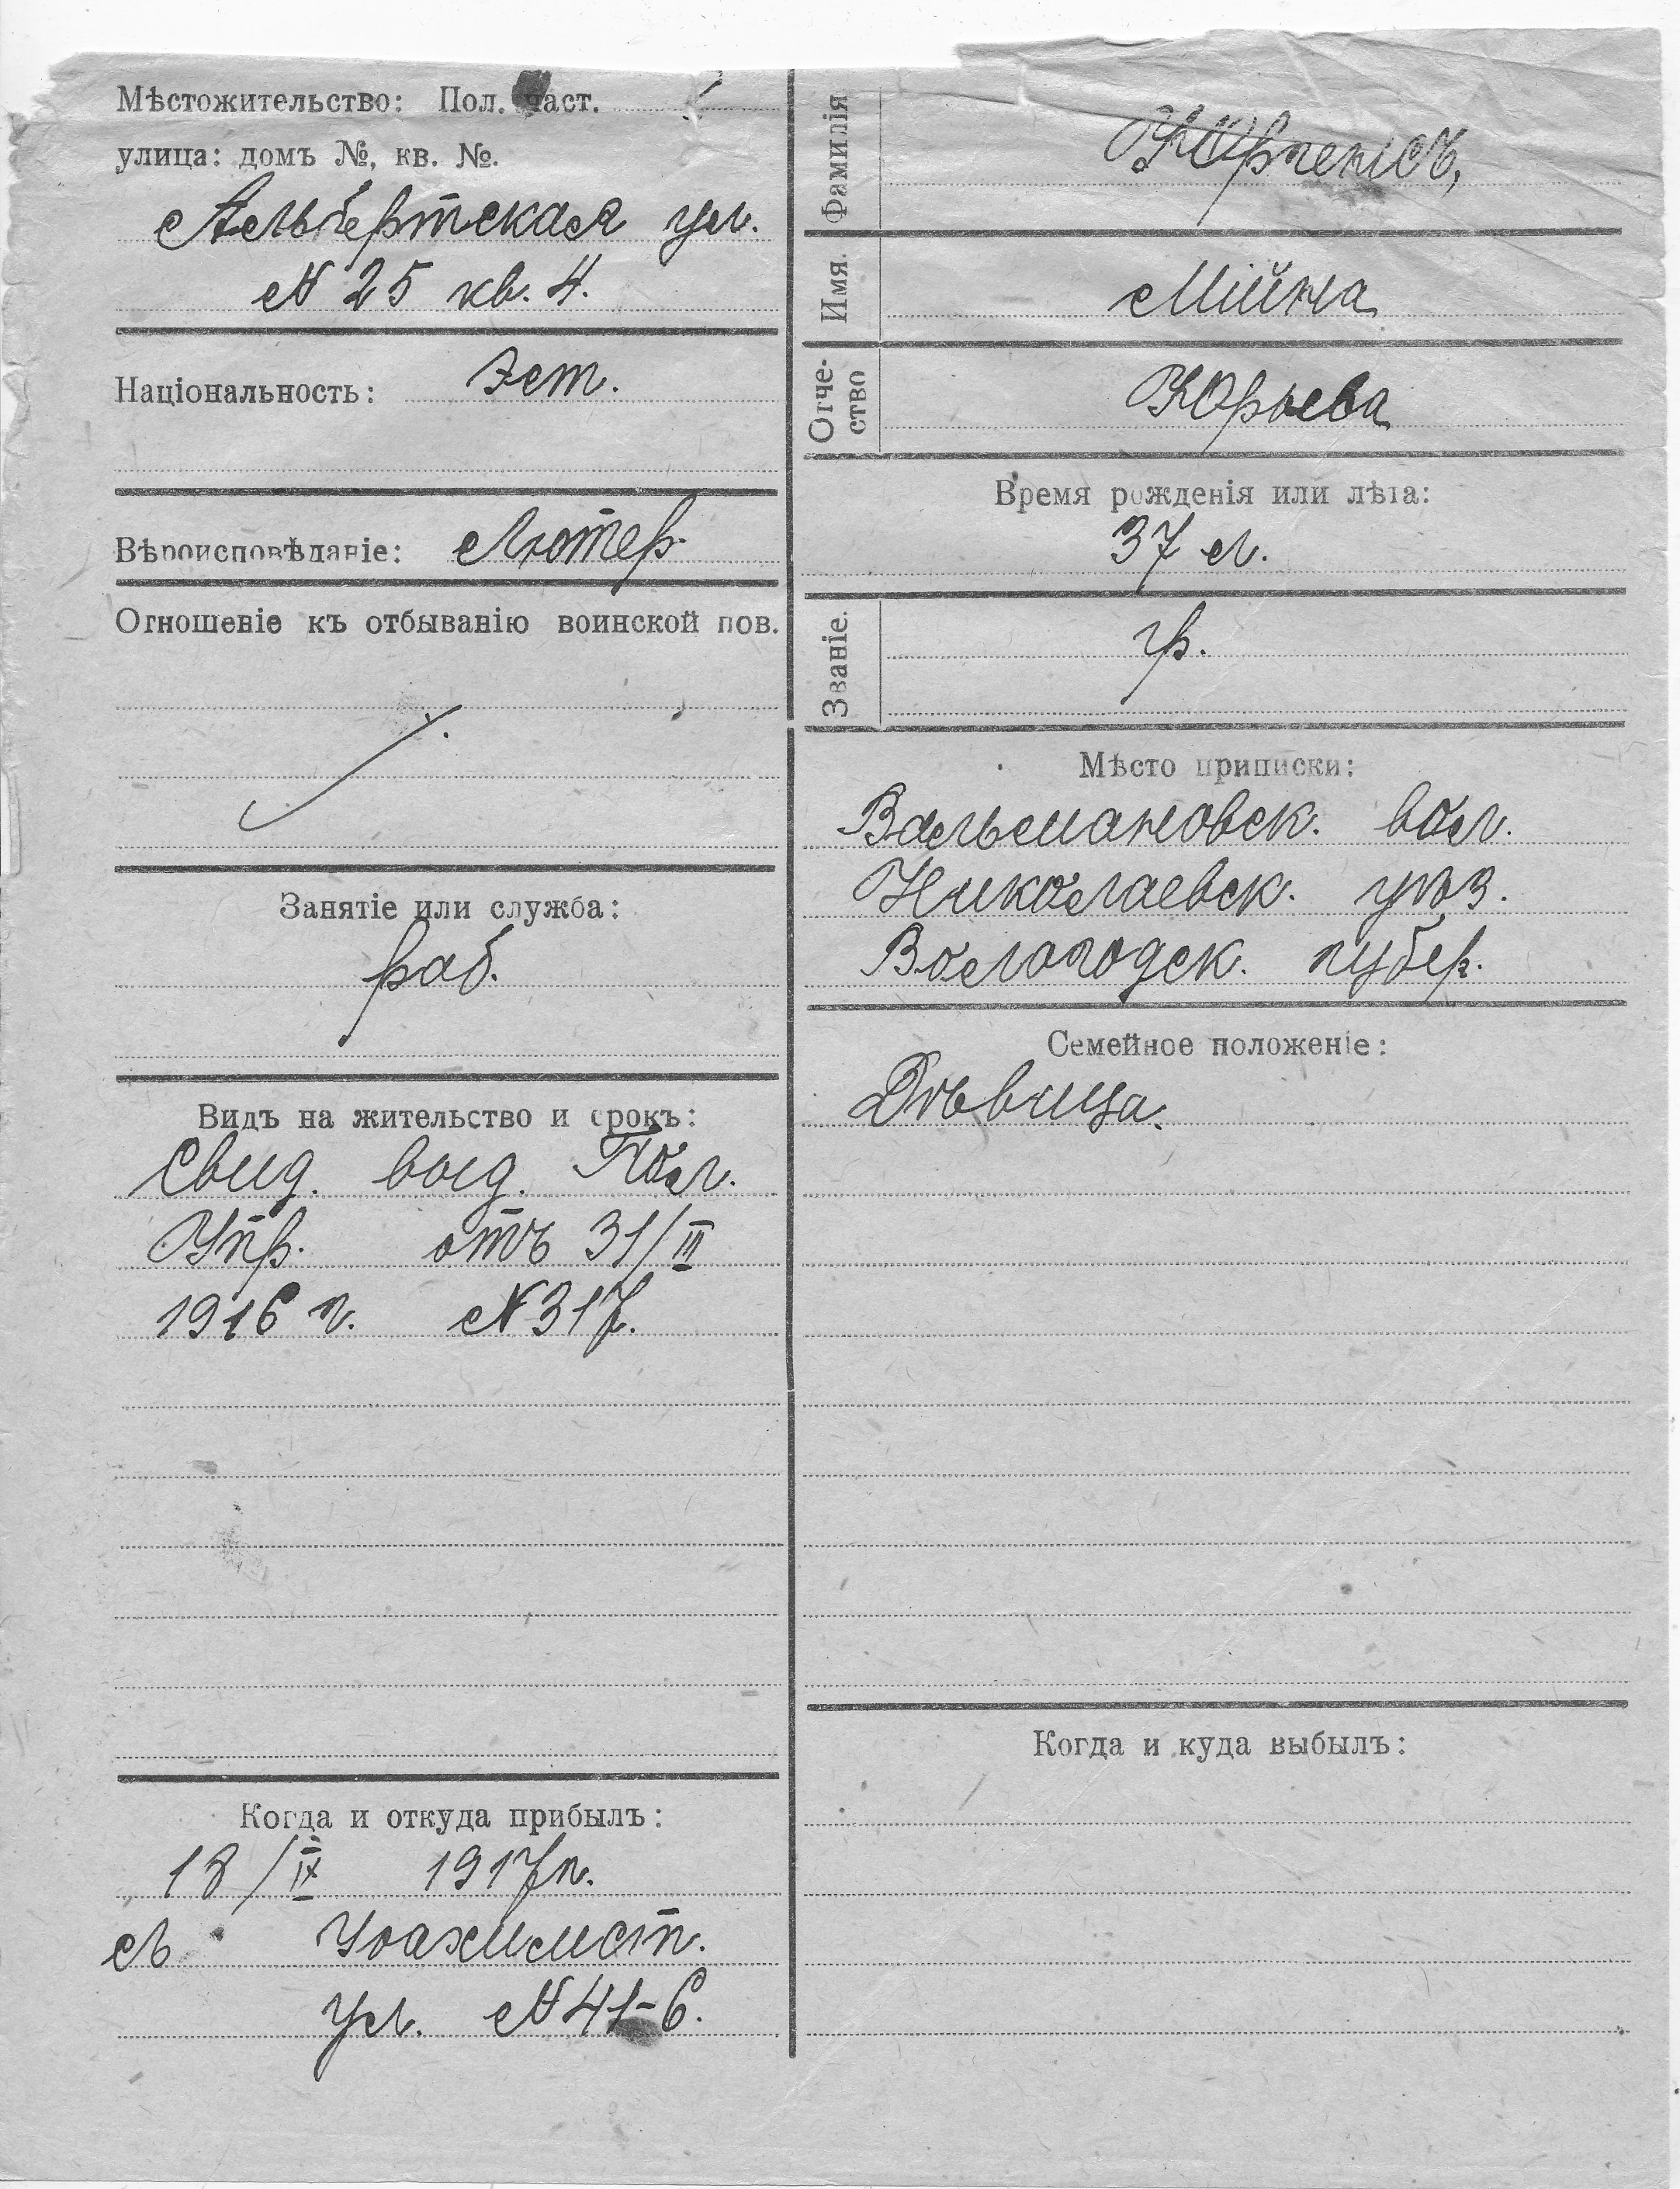 Мѣстожительство: Пол. част.
улица: домъ №, кв. №.
Альбертская ул.
№ 25 кв. 4.
Національность: Эст.
Вѣроисповѣданіе: Лютер.
Отношеніе къ отбыванію воинской пов.
Занятіе или служба:
раб.
Видъ на жительство и срокъ:
Свид. выд. Пол.
Упр. отъ 31/III
1916 г. № 317.
Когда и откуда прибылъ:
18/IX 1917 г.
съ Іоахимст.
ул. № 41-6.
Фамилія
Юргенсъ,
Имя.
Мійна
Отче-
ство
Юрьева
Время рожденія или лѣта:
37 л.
Званіе.
гр.
Мѣсто приписки:
Вальмановск. вол.
Николаевск. уѣз.
Вологодск. губер.
Семейное положеніе:
Дѣвица.
Когда и куда выбылъ: